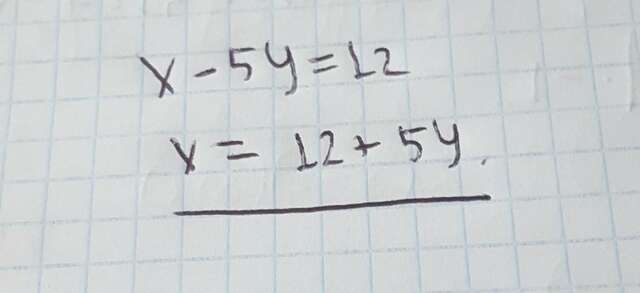 x - 5y = 12
x = 12 + 5y.